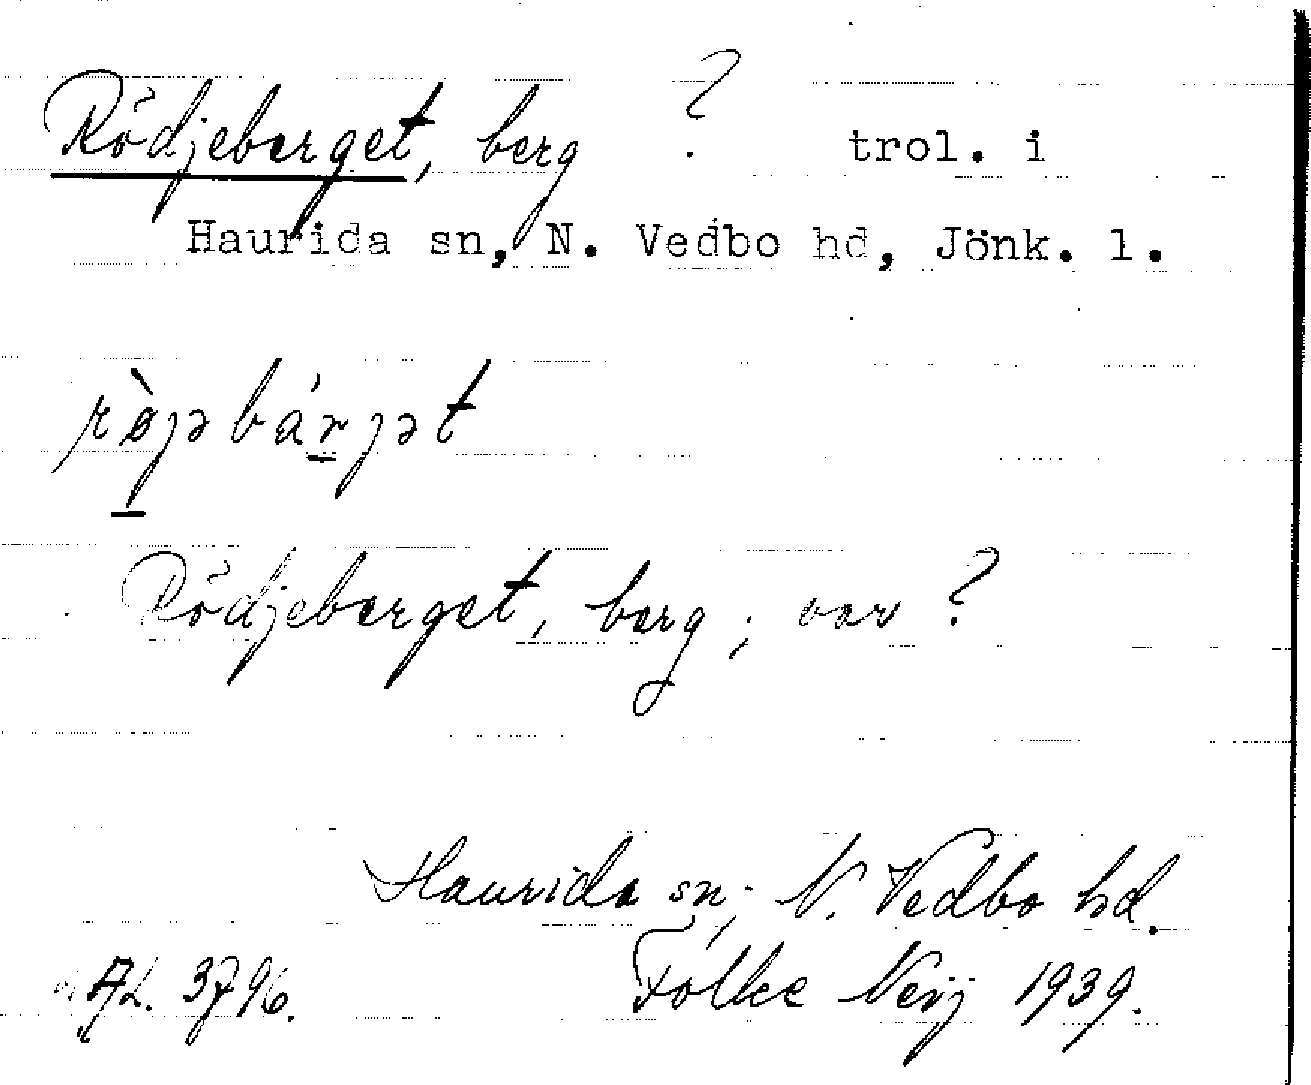 Rödjeberget, berg ? trol. i
Haurida sn, N. Vedbo hd, Jönk. l.
rø̀jəbárjət
Rödjeberget, berg; var ?
Haurida sn; N. Vedbo hd.
AL. 3796. Folke Neij 1939.